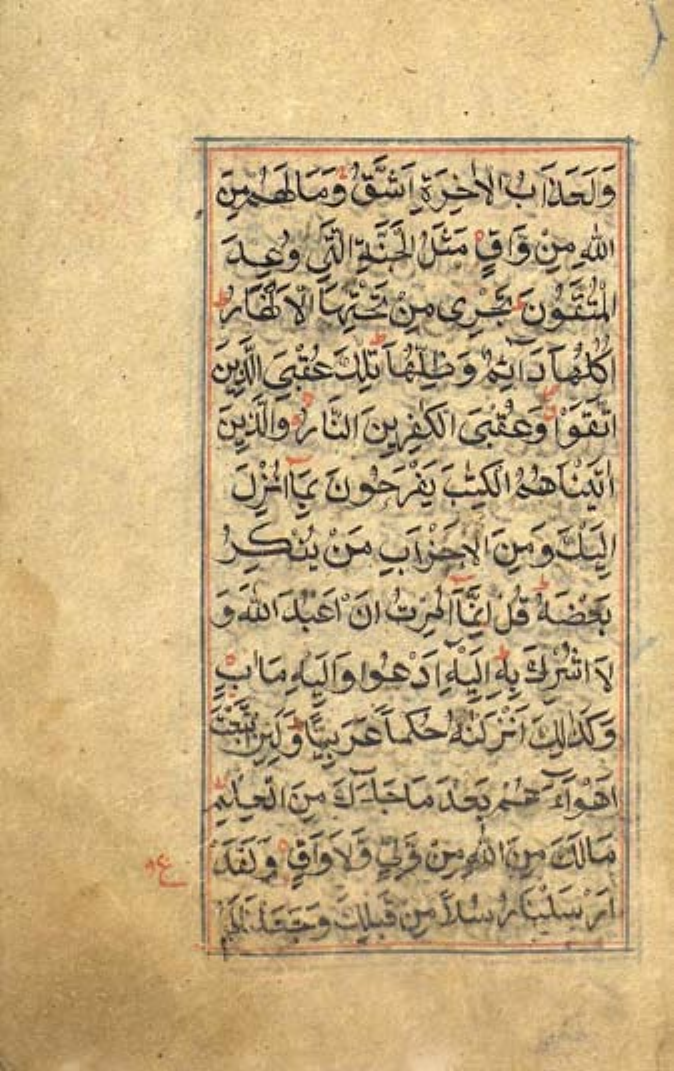 وَلَعَذَابُ الْاٰخِرَةِ اَشَقُّ وَمَا لَهُمْ مِنَ
اللهِ مِنْ وَّاقٍ مَثَلُ الْجَنَّةِ الَّتِي وُعِدَ
الْمُتَّقُونَ تَجْرِى مِنْ تَحْتِهَا الْاَنْهَارُ
اُكُلُهَا دَائِمٌ وَظِلُّهَا تِلْكَ عُقْبَى الَّذِينَ
اتَّقَوْا وَعُقْبَى الْكٰفِرِينَ النَّارُ وَالَّذِينَ
اٰتَيْنَاهُمُ الْكِتٰبَ يَفْرَحُونَ بِمَا اُنْزِلَ
اِلَيْكَ وَمِنَ الْاَحْزَابِ مَنْ يُنْكِرُ
بَعْضَهُ قُلْ اِنَّمَا اُمِرْتُ اَنْ اَعْبُدَ اللهَ وَ
لَا اُشْرِكَ بِهِ اِلَيْهِ اَدْعُوا وَاِلَيْهِ مَاٰبِ
وَكَذٰلِكَ اَنْزَلْنٰهُ حُكْمًا عَرَبِيًّا وَلَئِنِ اتَّبَعْتَ
اَهْوَاءَهُمْ بَعْدَ مَا جَاءَكَ مِنَ الْعِلْمِ
مَالَكَ مِنَ اللهِ مِنْ وَّلِيٍّ وَّلَا وَاقٍ وَلَقَدْ
اَرْسَلْنَا رُسُلًا مِنْ قَبْلِكَ وَجَعَلْنَا لَهُمْ
ع